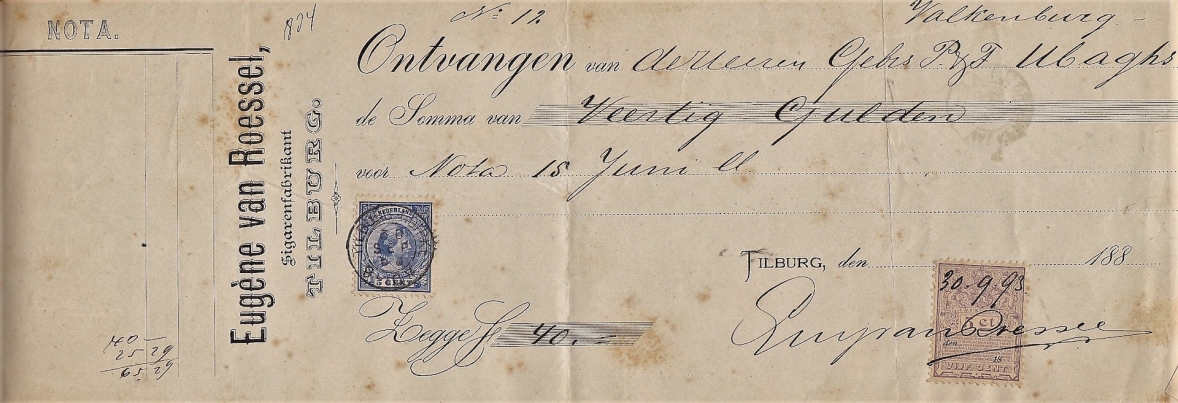 NOTA.
40 —
25 29
65 29
Eugène van Roessel,
Sigarenfabrikant
TILBURG.
No 12
Valkenburg –
Ontvangen van de Heeren Gebrs P & F Ubaghs
de Somma van Veertig Gulden
voor Nota 15 Juni ll
NEDERLAND
5 CENTS
TILBURG, den 188
30-9-93
den
18
VIJF CENT
Zegge f 40.–